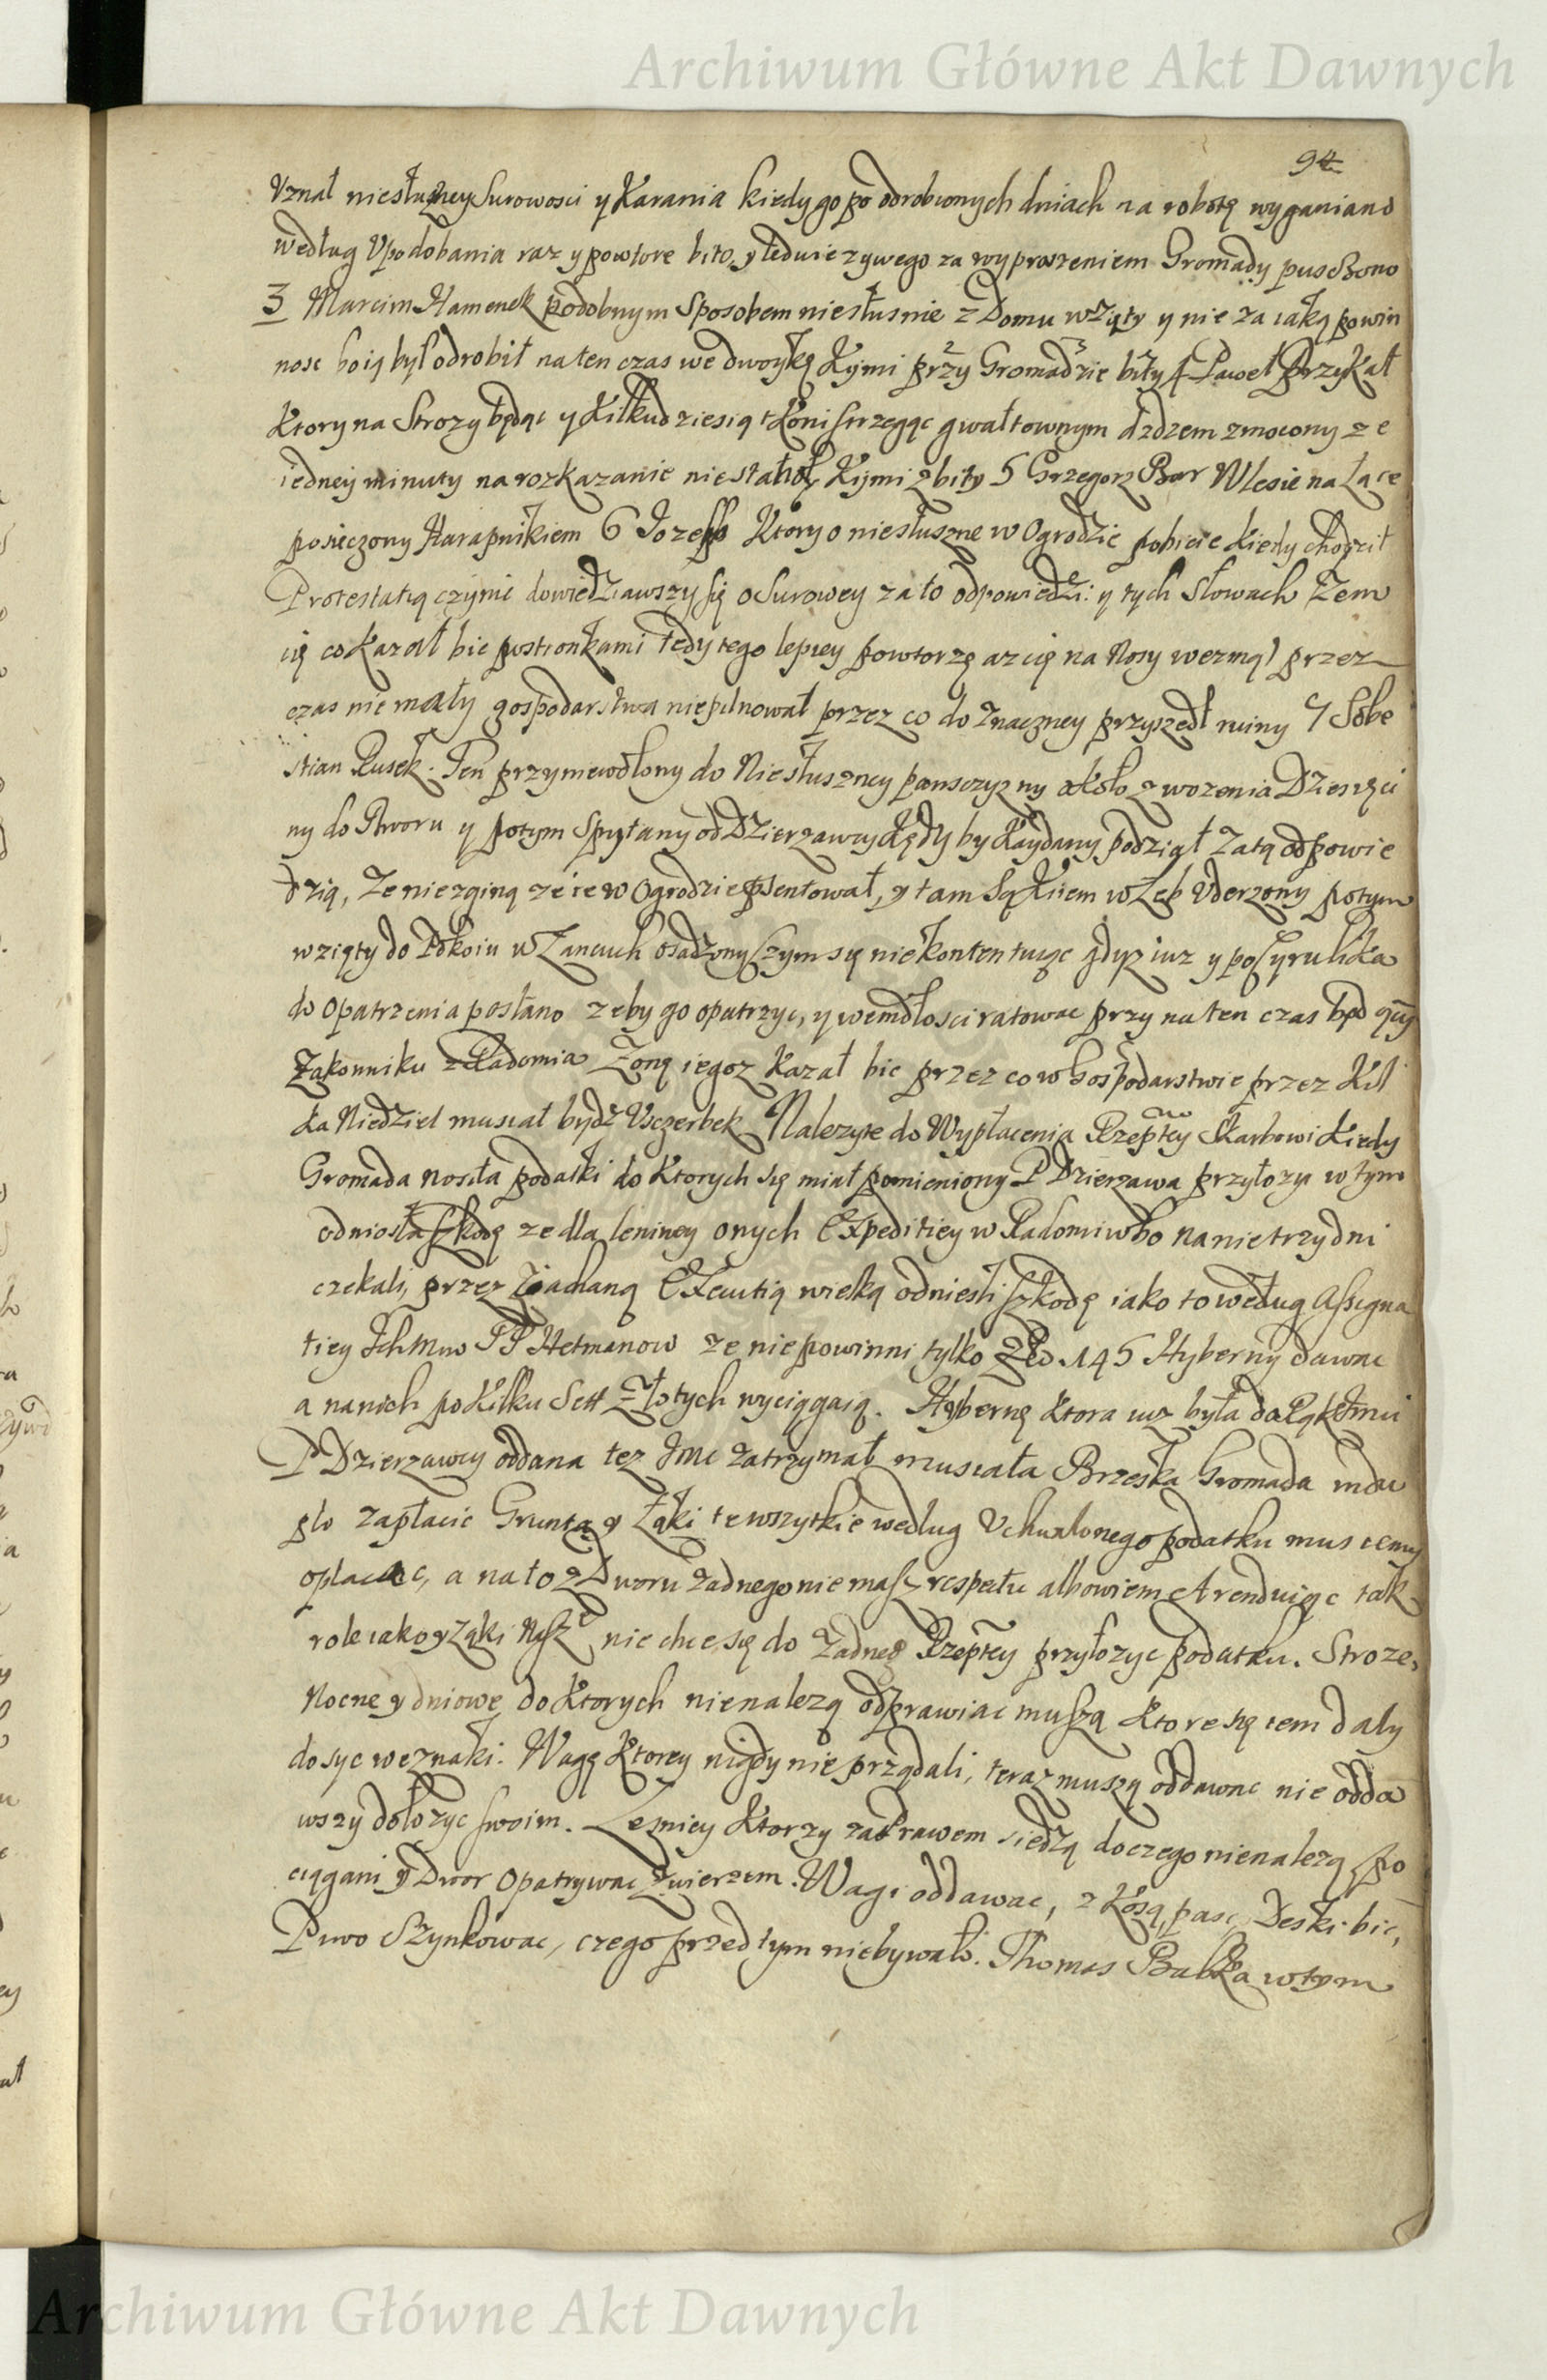 Archiwum Główne Akt Dawnych
94
Vznał niesłuzney Surowosci y Karania kiedy go po odrobionych dniach na robotę wyganiano
według Vpodobania raz y powtore bito, y ledwie zywego za wyproszeniem Gromady puschono
3 Marcim Hamenek podobnym Sposobem niesłusnie z Domu wzięty y nie za iaką powin
nosc bo ią był odrobił na ten czas we dwoykę Kymi przy Gromadzie bity 4 Paweł Przykał
Ktory na Strozy będąc y Kilkudziesiąt Koni strzegąc gwałtownym dzdzem zmocony ze
iedney minuty na rozkazanie nie stanoł, Kymi zbity 5 Grzegorz Bar W Lesie na Łące
posieczony Harapnikiem 6 Iozeff Ktory o niesłuszne w Ogrodzie pobicie kiedy chodził
Protestatią czynic dowiedziawszy się o Surowey za to odpowiedzi: y tych Słowach Zem
cię co kazał bic postronkami tedy tego lepiey powtorzę az cię na Nosy wezmą) przez
czas nie mały gospodarstwa niepilnował przez co do znaczney przyszedł ruiny 7 Sobe
stian Rusek. Ten przymewolony do Niesłuszney panszczyzny około zwozenia Dziesięci
ny do Dworu y potym Spytany od Dzierzawcy kędy by Kaydany podział za tą odpowie
dzią, Ze nie zginą ze ie w Ogrodzie psentował, y tam Sękiem w Łeb Vderzony potym
wzięty do Pokoiu w Łancuch osadzony czym się nie kontentuiąc gdyz iuz y po Cyrulika
do opatrzenia posłano zeby go opatrzyc, y wemdłosci ratowac przy na ten czas będącym
Zakonniku z Radomia Zonę iegoz kazał bic przez co w Gospodarstwie przez Kil
ka Niedziel musiał bydz Vszczerbek Nalezyte do Wypłacenia Rzeptey Skarbowi kiedy
Gromada nosiła podatki do Ktorych się miał pomieniony P Dzierzawa przyłozyc w tym
odniosła szkodę ze dla leniney onych Expeditiey w Radomiu bo na nie trzy dni
czekali, przez ziachaną Executią wielką odniesli szkodę iako to według Assigna
tiey Ichmuv PP Hetmanow ze nie powinni tylko Zło. 145 Hyberny dawac
a na nich po Kilku Sett Złotych wyciągaią. Hybernę Ktora iuz była do Rąk Imci
P Dzierzawcy oddana tez Imc zatrzymał musiała Brzeska Gromada indu
plo zapłacic Grunta y Łąki te wszytkie według Vchwalonego podatku musiemy
opłacac, a na to z Dworu zadnego nie masz respectu albowiem Arenduiąc tak
role iako y Łąki Nasze nie chce się do zadneg Rzeptey przyłozyc podatku. Stroze,
Nocne y dniowe do Ktorych nie nalezą odprawiac muszą Ktore się iem dały
dosyc weznaki. Wagę Ktorey nigdy nie prządali, teraz muszą oddawac nie odda
wszy dołozyc swoim. Lezniey Ktorzy za Prawem siedzą do czego nie nalezą po
ciągani y Dwor Opatrywac Zwierzem. Wagi oddawac, z Kosą, pasc Deski bic,
Piwo Szynkowac, czego przed tym niebywało. Thomas Babka w tym
Archiwum Główne Akt Dawnych